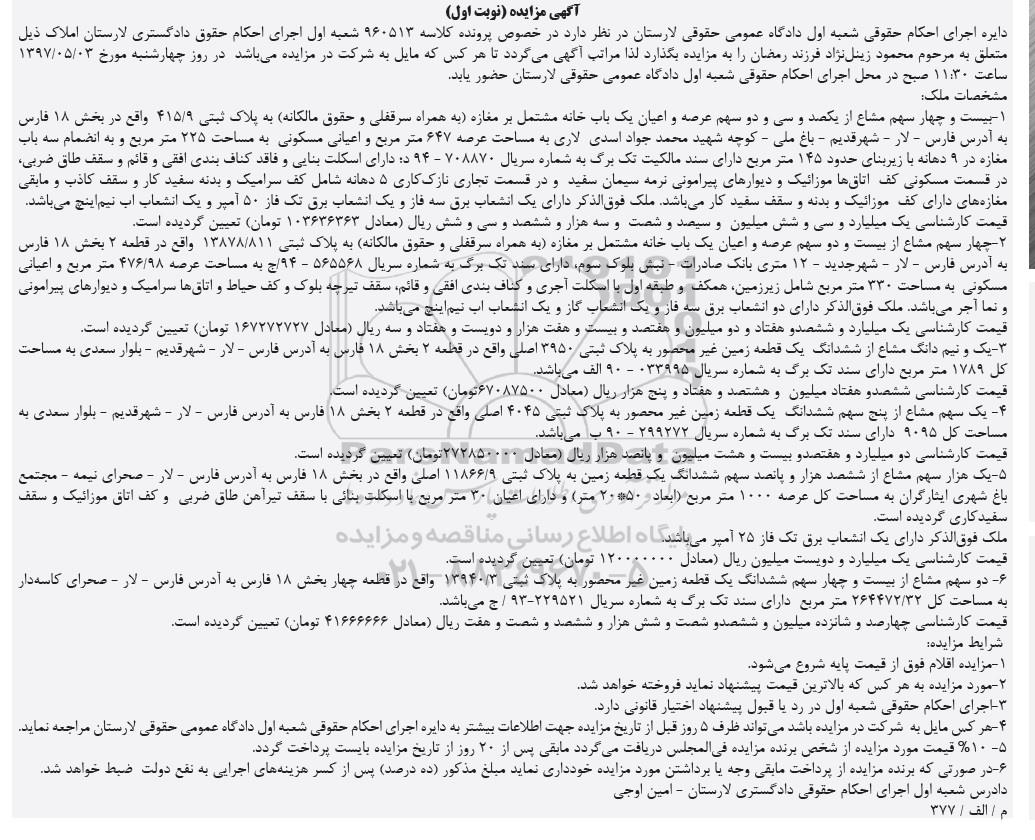 آگهی مزایده (نوبت اول)
دایره اجرای احکام حقوقی شعبه اول دادگاه عمومی حقوقی لارستان در نظر دارد در خصوص پرونده کلاسه ۹۶۰۵۱۳ شعبه اول اجرای احکام حقوق دادگستری لارستان املاک ذیل
متعلق به مرحوم محمود زینل‌نژاد فرزند رمضان را به مزایده بگذارد لذا مراتب آگهی می‌گردد تا هر کس که مایل به شرکت در مزایده می‌باشد در روز چهارشنبه مورخ ۱۳۹۷/۰۵/۰۳
ساعت ۱۱:۳۰ صبح در محل اجرای احکام حقوقی شعبه اول دادگاه عمومی حقوقی لارستان حضور یابد.
مشخصات ملک:
۱-بیست و چهار سهم مشاع از یکصد و سی و دو سهم عرصه و اعیان یک باب خانه مشتمل بر مغازه (به همراه سرقفلی و حقوق مالکانه) به پلاک ثبتی ۴۱۵/۹ واقع در بخش ۱۸ فارس
به آدرس فارس - لار - شهرقدیم - باغ ملی - کوچه شهید محمد جواد اسدی لاری به مساحت عرصه ۶۴۷ متر مربع و اعیانی مسکونی به مساحت ۲۲۵ متر مربع و به انضمام سه باب
مغازه در ۹ دهانه با زیربنای حدود ۱۴۵ متر مربع دارای سند مالکیت تک برگ به شماره سریال ۷۰۸۸۷۰ - ۹۴ د؛ دارای اسکلت بنایی و فاقد کناف بندی افقی و قائم و سقف طاق ضربی،
در قسمت مسکونی کف اتاق‌ها موزائیک و دیوارهای پیرامونی نرمه سیمان سفید و در قسمت تجاری نازک‌کاری ۵ دهانه شامل کف سرامیک و بدنه سفید کار و سقف کاذب و مابقی
مغازه‌های دارای کف موزائیک و بدنه و سقف سفید کار می‌باشد. ملک فوق‌الذکر دارای یک انشعاب برق سه فاز و یک انشعاب برق تک فاز ۵۰ آمپر و یک انشعاب اب نیم‌اینچ می‌باشد.
قیمت کارشناسی یک میلیارد و سی و شش میلیون و سیصد و شصت و سه هزار و ششصد و سی و شش ریال (معادل ۱۰۳۶۳۶۳۶۳ تومان) تعیین گردیده است.
۲-چهار سهم مشاع از بیست و دو سهم عرصه و اعیان یک باب خانه مشتمل بر مغازه (به همراه سرقفلی و حقوق مالکانه) به پلاک ثبتی ۱۳۸۷۸/۸۱۱ واقع در قطعه ۲ بخش ۱۸ فارس
به آدرس فارس - لار - شهرجدید - ۱۲ متری بانک صادرات - نبش بلوک سوم، دارای سند تک برگ به شماره سریال ۵۶۵۵۶۸ - ۹۴/ج به مساحت عرصه ۴۷۶/۹۸ متر مربع و اعیانی
مسکونی به مساحت ۳۳۰ متر مربع شامل زیرزمین، همکف و طبقه اول با اسکلت آجری و کناف بندی افقی و قائم، سقف تیرچه بلوک و کف حیاط و اتاق‌ها سرامیک و دیوارهای پیرامونی
و نما آجر می‌باشد. ملک فوق‌الذکر دارای دو انشعاب برق سه فاز و یک انشعاب گاز و یک انشعاب اب نیم‌اینچ می‌باشد.
قیمت کارشناسی یک میلیارد و ششصدو هفتاد و دو میلیون و هفتصد و بیست و هفت هزار و دویست و هفتاد و سه ریال (معادل ۱۶۷۲۷۲۷۲۷ تومان) تعیین گردیده است.
۳-یک و نیم دانگ مشاع از ششدانگ یک قطعه زمین غیر محصور به پلاک ثبتی ۳۹۵۰ اصلی واقع در قطعه ۲ بخش ۱۸ فارس به آدرس فارس - لار - شهرقدیم - بلوار سعدی به مساحت
کل ۱۷۸۹ متر مربع دارای سند تک برگ به شماره سریال ۰۳۳۹۹۵ - ۹۰ الف می‌باشد.
قیمت کارشناسی ششصدو هفتاد میلیون و هشتصد و هفتاد و پنج هزار ریال (معادل ۶۷۰۸۷۵۰۰تومان) تعیین گردیده است.
۴- یک سهم مشاع از پنج سهم ششدانگ یک قطعه زمین غیر محصور به پلاک ثبتی ۴۰۴۵ اصلی واقع در قطعه ۲ بخش ۱۸ فارس به آدرس فارس - لار - شهرقدیم - بلوار سعدی به
مساحت کل ۹۰۹۵ دارای سند تک برگ به شماره سریال ۲۹۹۲۷۲ - ۹۰ ب می‌باشد.
قیمت کارشناسی دو میلیارد و هفتصدو بیست و هشت میلیون و پانصد هزار ریال (معادل ۲۷۲۸۵۰۰۰۰تومان) تعیین گردیده است.
۵-یک هزار سهم مشاع از ششصد هزار و پانصد سهم ششدانگ یک قطعه زمین به پلاک ثبتی ۱۱۸۶۶/۹ اصلی واقع در بخش ۱۸ فارس به آدرس فارس - لار - صحرای نیمه - مجتمع
باغ شهری ایثارگران به مساحت کل عرصه ۱۰۰۰ متر مربع (ابعاد ۵۰*۲۰ متر) و دارای اعیان ۳۰ متر مربع با اسکلت بنائی با سقف تیرآهن طاق ضربی و کف اتاق موزائیک و سقف
سفیدکاری گردیده است.
ملک فوق‌الذکر دارای یک انشعاب برق تک فاز ۲۵ آمپر می‌باشد.
قیمت کارشناسی یک میلیارد و دویست میلیون ریال (معادل ۱۲۰۰۰۰۰۰۰ تومان) تعیین گردیده است.
۶- دو سهم مشاع از بیست و چهار سهم ششدانگ یک قطعه زمین غیر محصور به پلاک ثبتی ۱۳۹۴۰/۳ واقع در قطعه چهار بخش ۱۸ فارس به آدرس فارس - لار - صحرای کاسه‌دار
به مساحت کل ۲۶۴۴۷۲/۳۲ متر مربع دارای سند تک برگ به شماره سریال ۲۲۹۵۲۱-۹۳ / ج می‌باشد.
قیمت کارشناسی چهارصد و شانزده میلیون و ششصدو شصت و شش هزار و ششصد و شصت و هفت ریال (معادل ۴۱۶۶۶۶۶۶ تومان) تعیین گردیده است.
شرایط مزایده:
۱-مزایده اقلام فوق از قیمت پایه شروع می‌شود.
۲-مورد مزایده به هر کس که بالاترین قیمت پیشنهاد نماید فروخته خواهد شد.
۳-اجرای احکام حقوقی شعبه اول در رد یا قبول پیشنهاد اختیار قانونی دارد.
۴-هر کس مایل به شرکت در مزایده باشد می‌تواند ظرف ۵ روز قبل از تاریخ مزایده جهت اطلاعات بیشتر به دایره اجرای احکام حقوقی شعبه اول دادگاه عمومی حقوقی لارستان مراجعه نماید.
۵- ۱۰% قیمت مورد مزایده از شخص برنده مزایده فی‌المجلس دریافت می‌گردد مابقی پس از ۲۰ روز از تاریخ مزایده بایست پرداخت گردد.
۶-در صورتی که برنده مزایده از پرداخت مابقی وجه یا برداشتن مورد مزایده خودداری نماید مبلغ مذکور (ده درصد) پس از کسر هزینه‌های اجرایی به نفع دولت ضبط خواهد شد.
دادرس شعبه اول اجرای احکام حقوقی دادگستری لارستان - امین اوجی
م / الف / ۳۷۷
ParsNamadData
پایگاه اطلاع رسانی مناقصه و مزایده